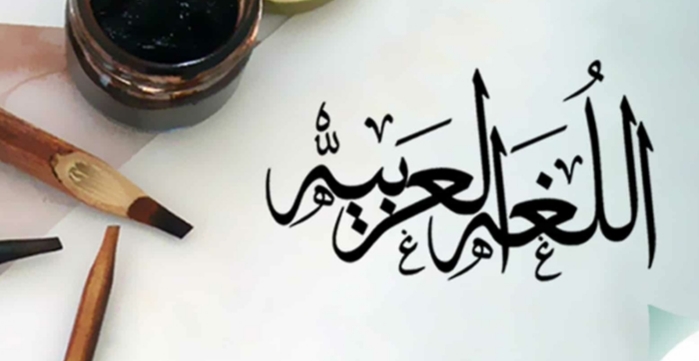 اللُغَة العَرَبيَّة